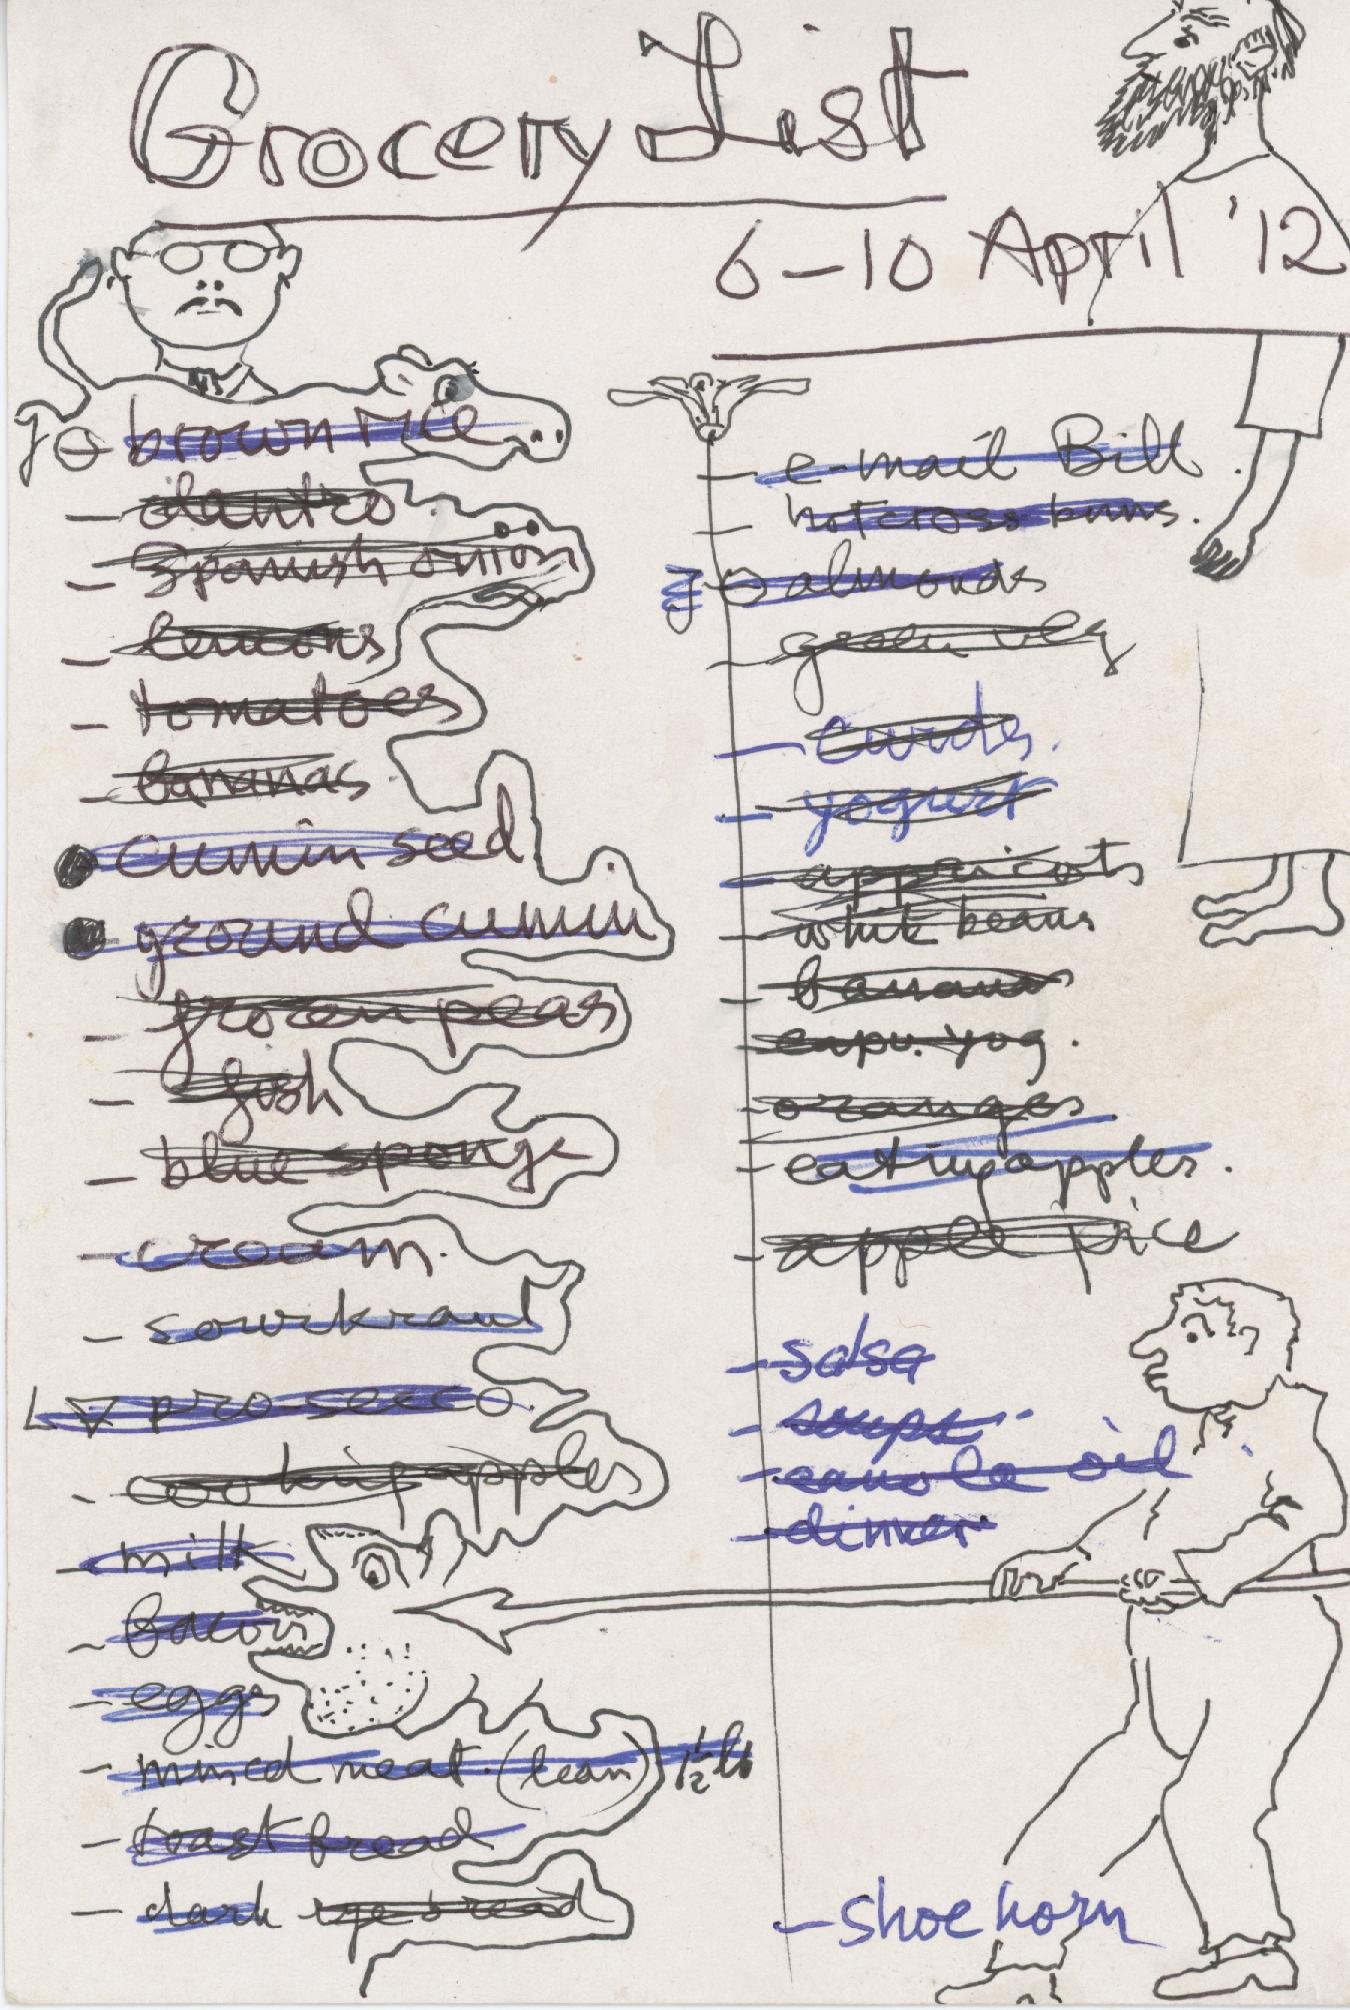 Grocery List
6-10 April '12
brown rice
- cilantro
- Spanish onion
- lemons
- tomatoes
- bananas
cumin seed
ground cumin
- frozen peas
- fish
- blue sponge
- cream.
- sourkraut
pro-secco.
- cooking apples
- milk
- bacon
- eggs
- minced meat. (lean) 1 1/2 lb
- toast bread
- dark rye bread
- e-mail Bill.
- hot cross buns.
almonds
- green veg
- curds.
- yogurt
- appricots
- white beans
- banana
yog.
- oranges
- eating apples.
- apple
- salsa
- soups
- canola oil
- dinner
- shoe horn